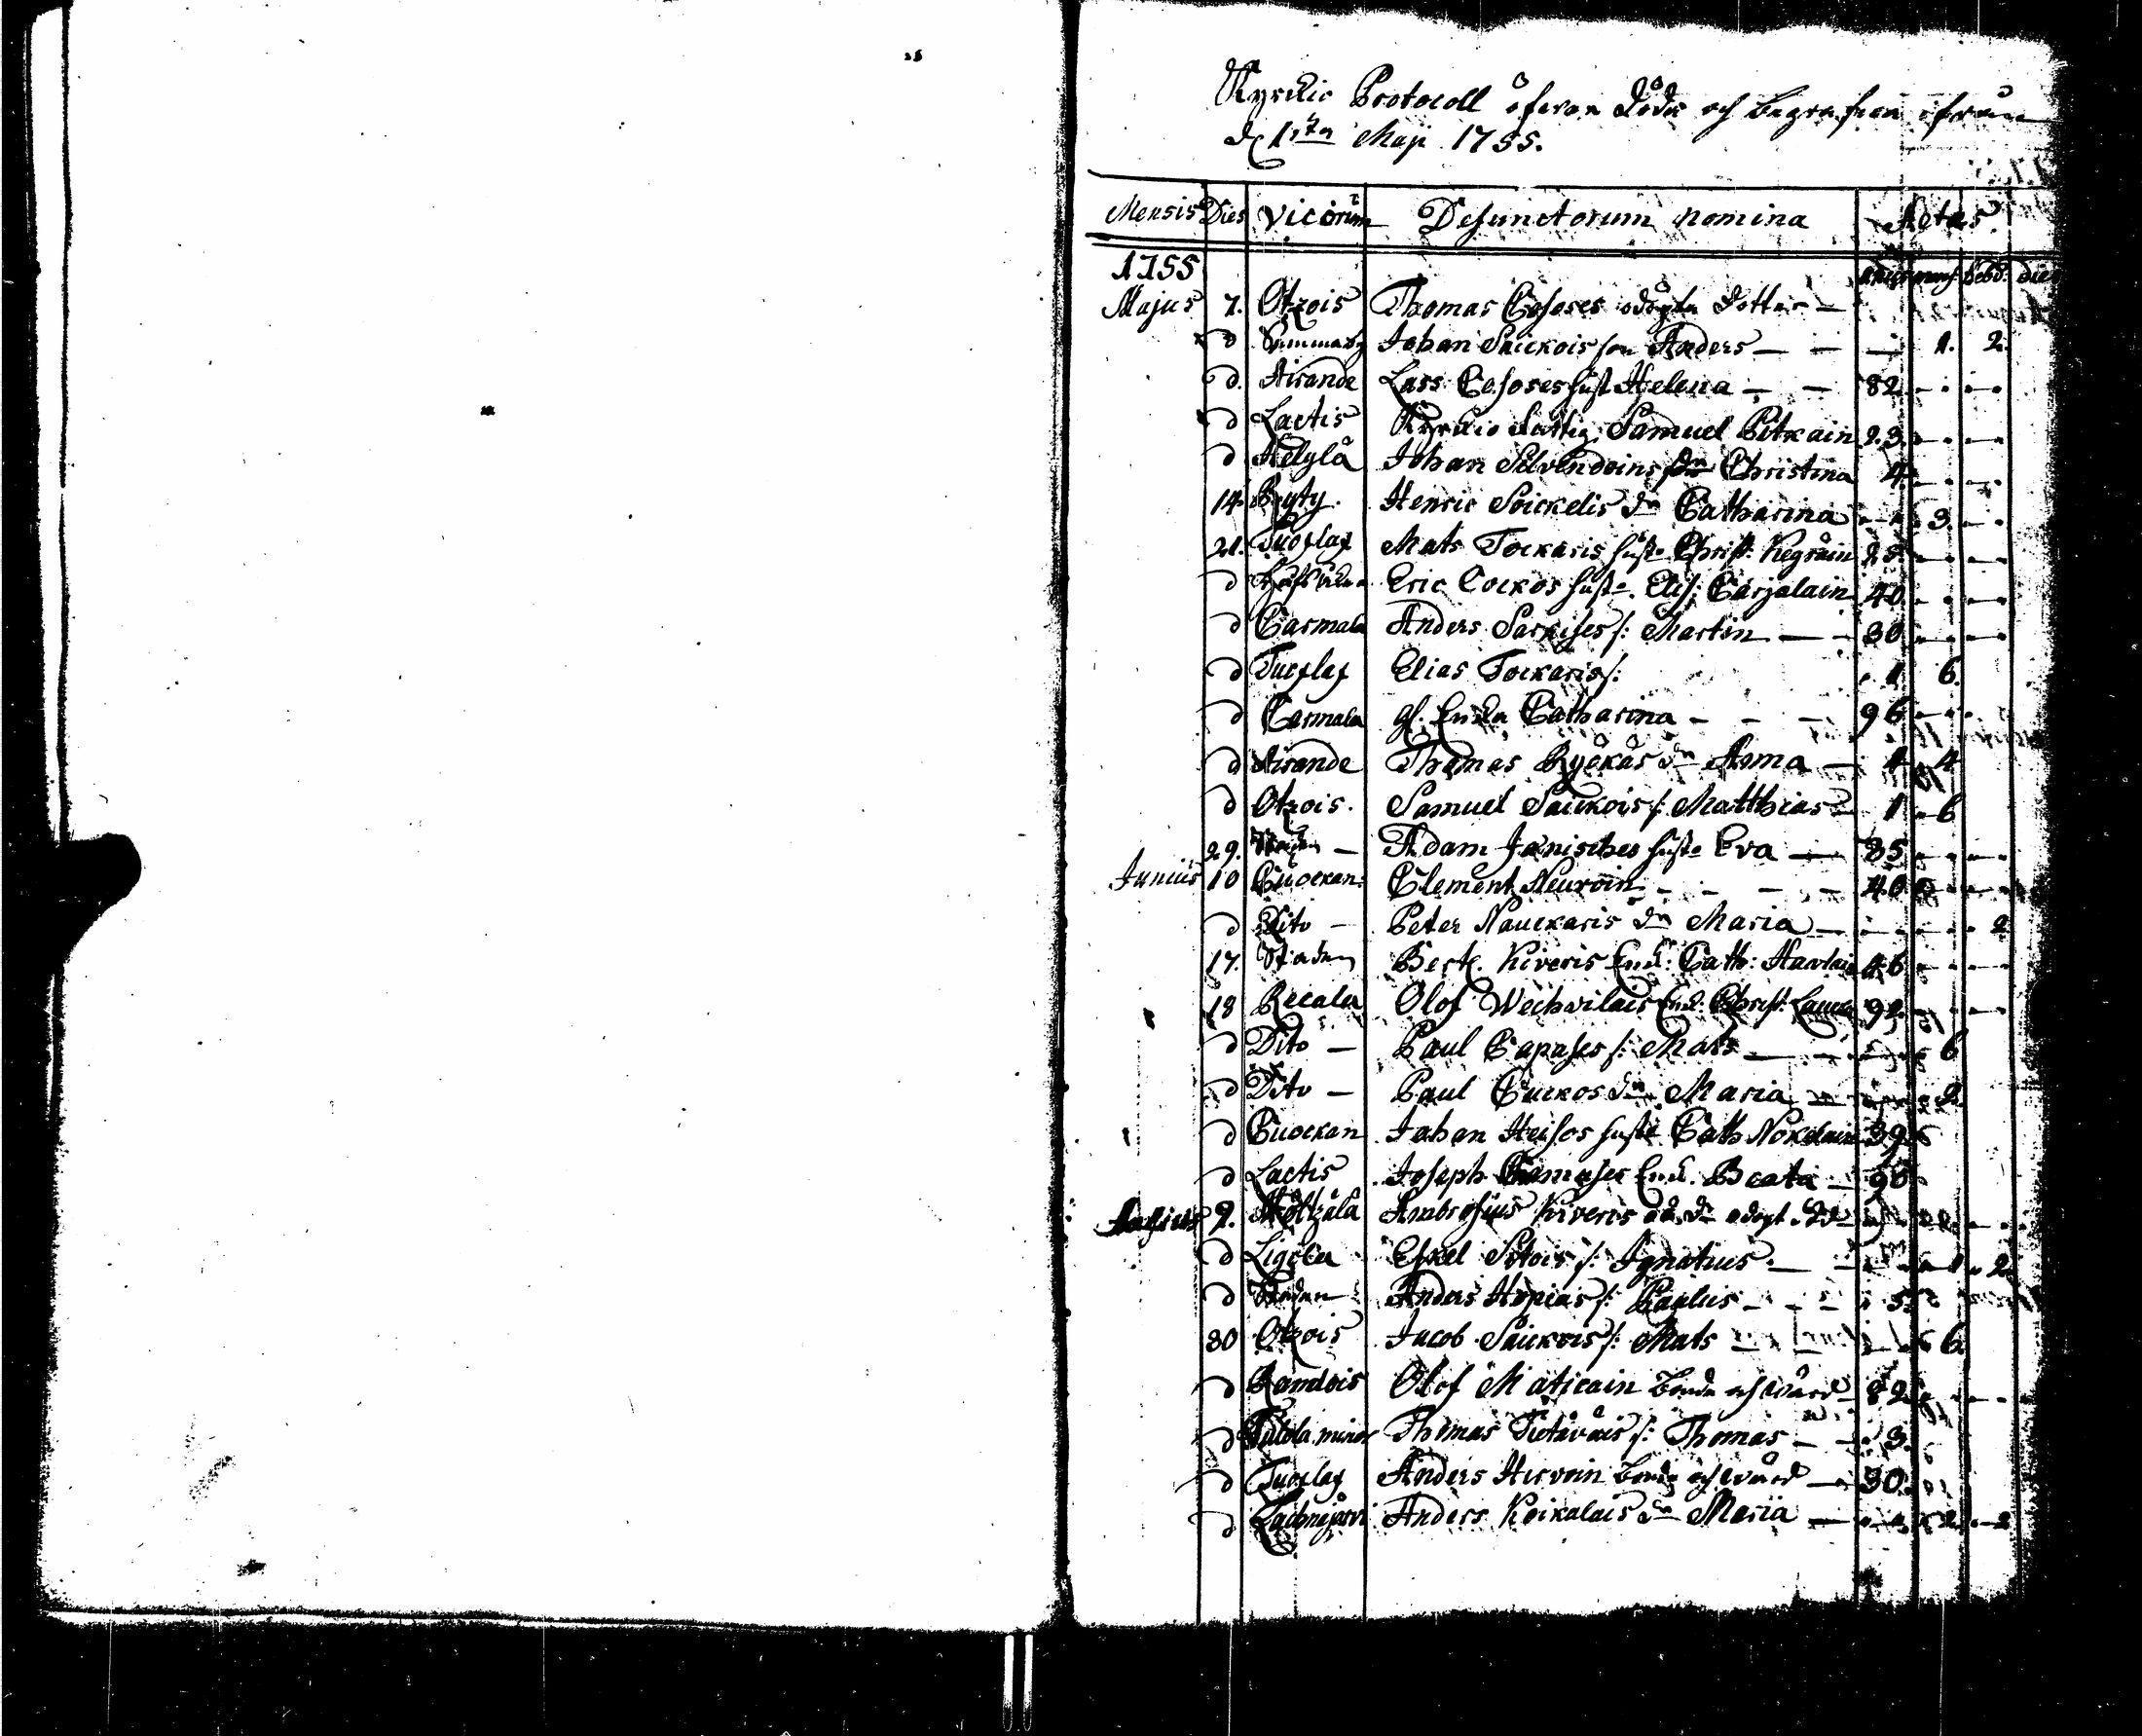 Kyrckio Protocoll öfwer Döde och begrafne ifrån
d. 1sta Maji 1755.
Mensis Dies Vicorum Defunctorum nomina Aetas
1755 annus mens. hebd. dies
Majus 7. Otzois Thomas Cososes odögta dotter —
d Summaby Johan Saickois son Anders — — — 1. 2.
d. Airande Lars Cososes hust Helena — — 82
d Lactis Kyrckio fattig Samuel Pitkäin 23
d Helylä Johan Silvendoins dr Christina 4.
14 Pyyty. Henric Soickelis dr Catharina 3
21. Tuoslax Mats Tockaris hust. Christ: Kegräin 25
d Eric Cockos hust. Elis: Carjalain 40
d Carmala Anders Parkises s: Martin — 30
d Tuoslax Elias Tockaris s: 1 6.
d Carmala gl. Enkia Catharina — — — 96
d Airande Thomas Ryökäs dr Anna — 1 4
d Otzois. Samuel Saickois s: Matthias 1 6
29. Staden — Adam Janisches hust. Eva — 35
Junius 10 Cuockan: Clement Neuvoin — — — 40
d Dito — Peter Nauckaris dr Maria — 2
17. Staden Bert. Kiveris Enk: Cath: 46
18 Recala Olof Wechvilais Enk. Christ: 92
d Dito — Paul Capases s: Mats — 6
d Dito — Paul Cuckos dr Maria — 2.
d Cuockan Johan Heisos hust Cath 39
d Lactis Joseph Enk. Beata — 90
Julius 2. Möltzälä Ambrosius Kiveris odögt
d Ligola Eskel Sitois s: Ignatius — 1 2
d Staden Anders Hopias s: Paulus — — 5
30 Otzois Jacob Saickois s: Mats — 6
d Randois Olof Maticain bonde och wärd 82
d Talola minor Thomas Tietäväis s: Thomas — 3.
d Tuoslax Anders Hirvoin bonde och wärd — 30.
d Lachnajärvi Anders Koikalais dr Maria — 2. 2